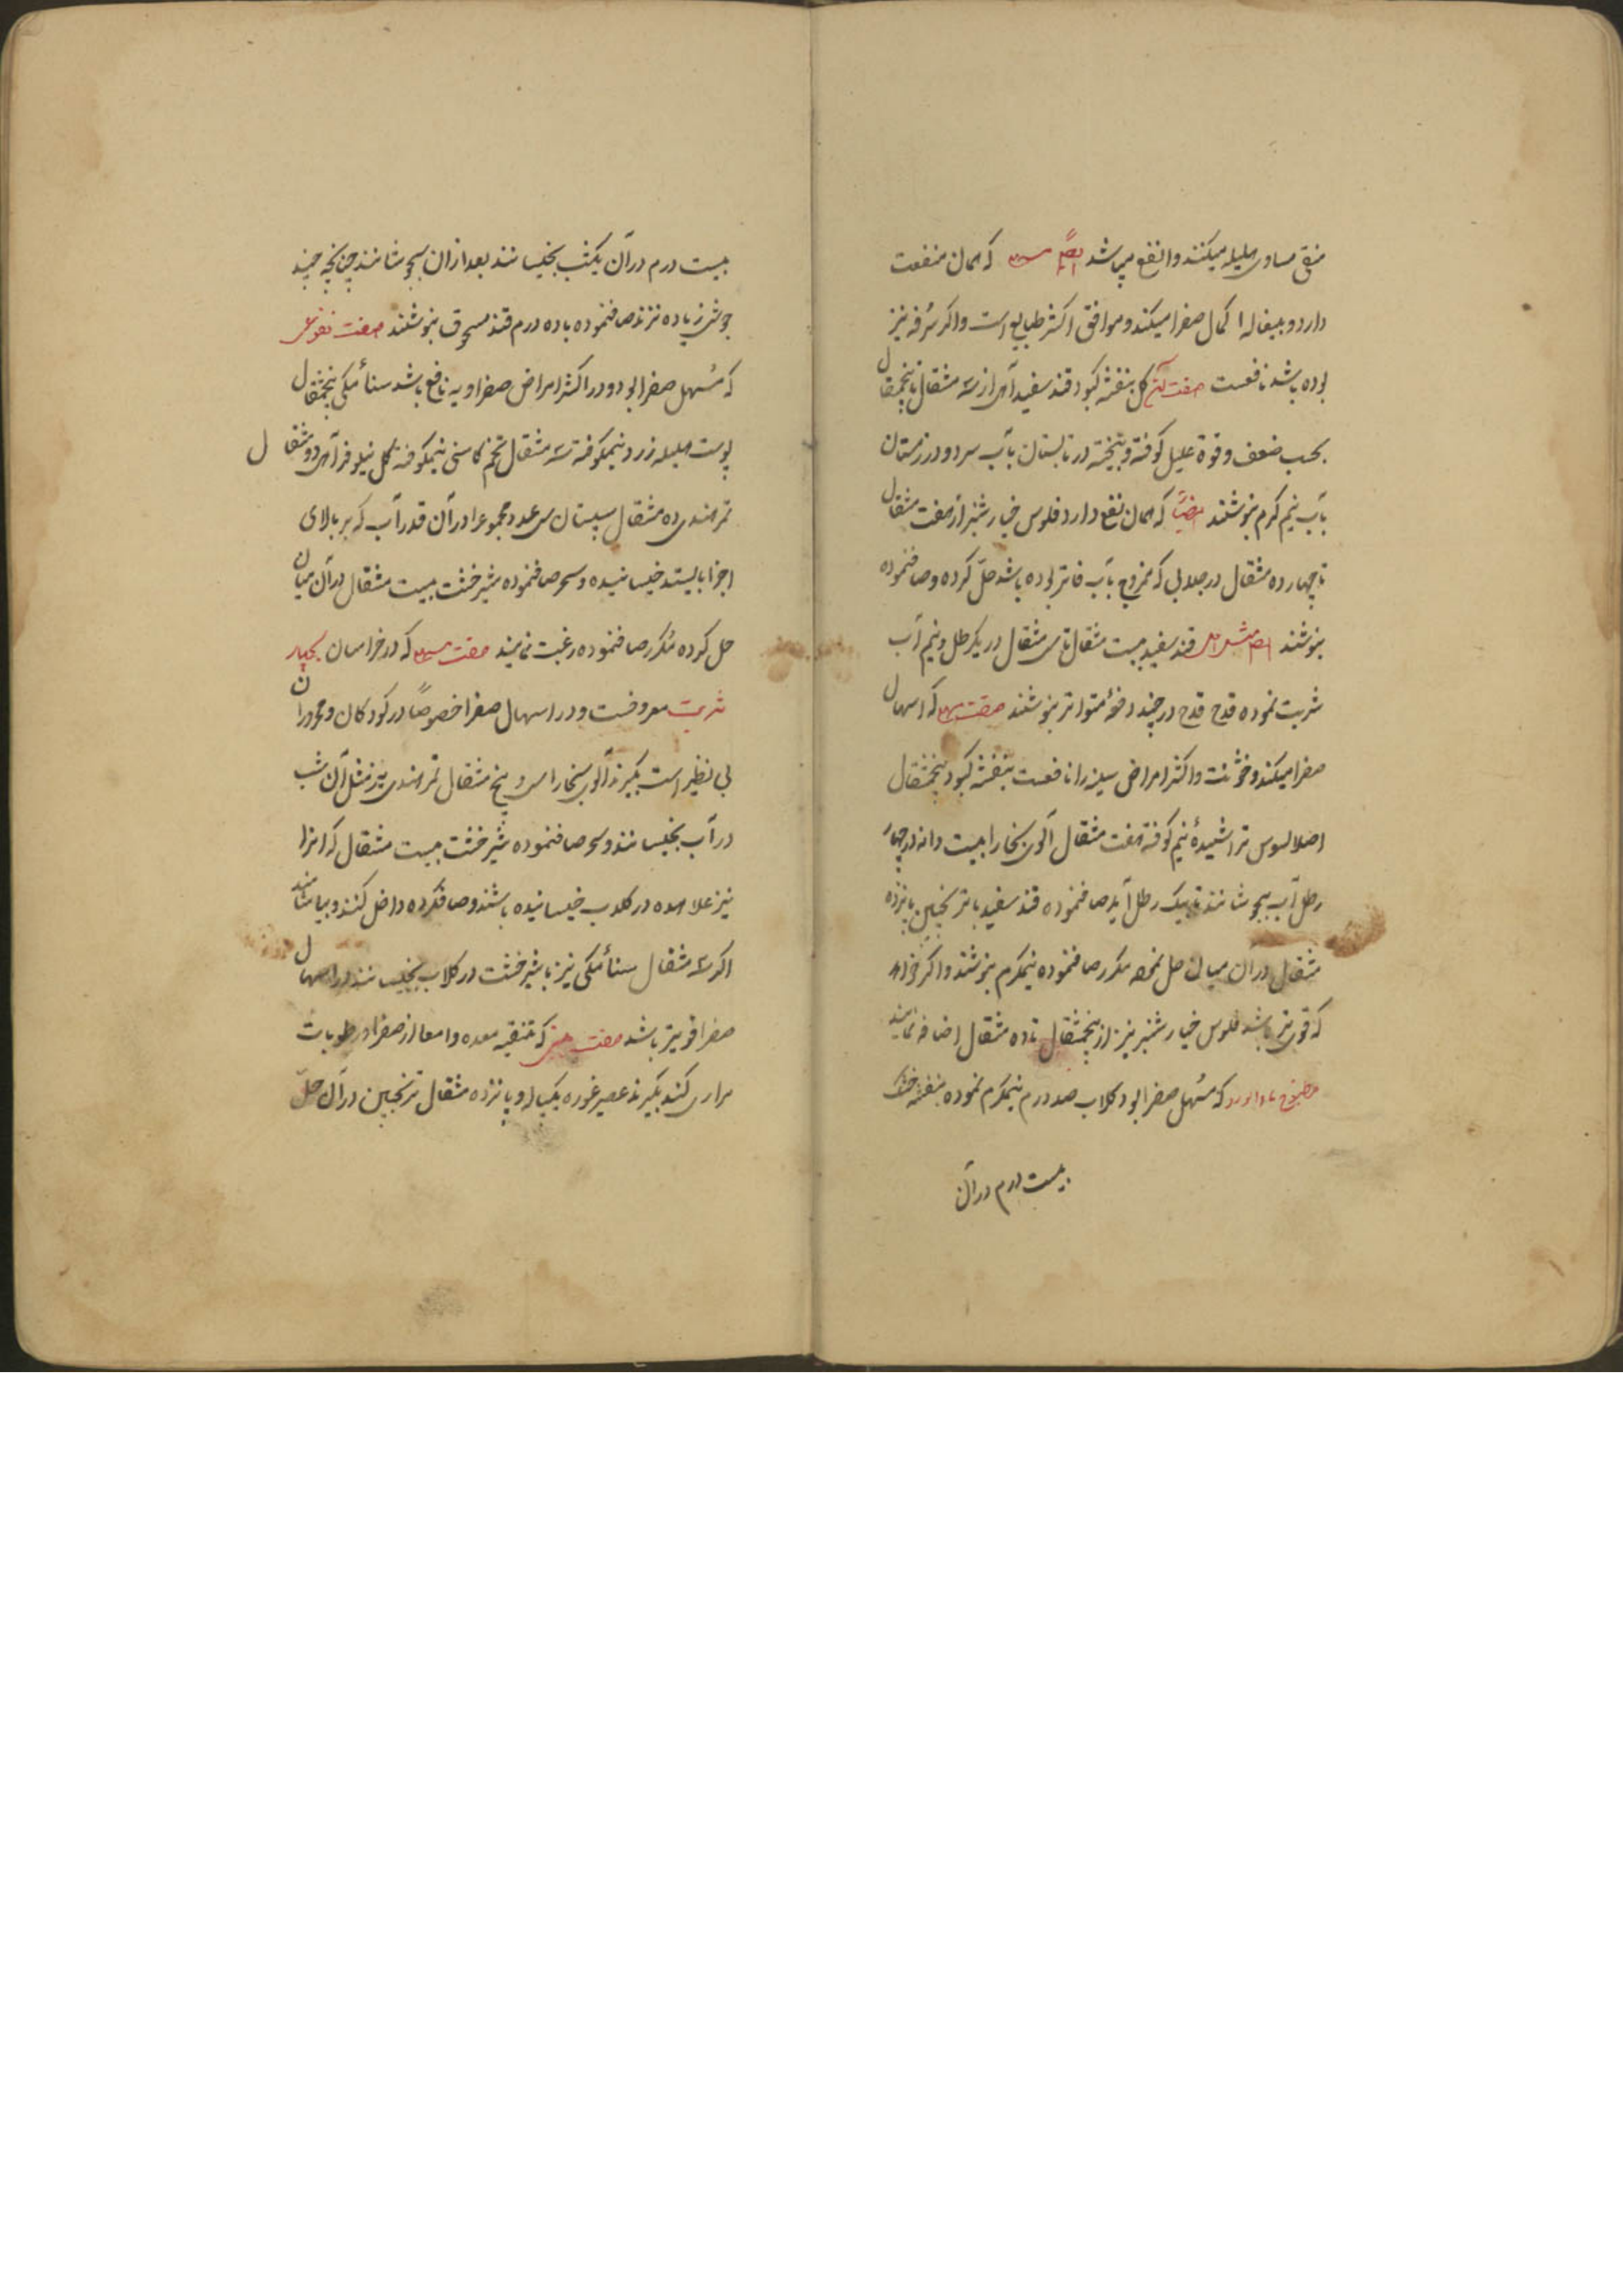 منقی مساوی هلیله میکنند وانفع میباشد ایضا مسهل که همان منفعت
دارد و بیغاله اکمال صفرا میکند و موافق اکثر طبایع است واکر سرفه نیز
بوده باشد نافعست صفت آن کل بنفشه کبود قند سفید از سه مثقال تا پنجمثقال
بحسب ضعف وقوة علیل کوفته و بیخته در تابستان بآب سرد و در زمستان
بآب نیم کرم بنوشند ایضا که همان نفع دارد فلوس خیار شنبر از هفت مثقال
تا چهارده مثقال در جلابی که ممزوج بآب فاتر بوده باشد حلّ کرده و صاف نموده
بنوشند ایضا قند سفید بیست مثقال تا سی مثقال در یکرطل و نیم آب
شربت نموده قدح قدح در چند دفعهٔ متواتر بنوشند صفت مسهل که اسهال
صفرا میکند و خشونت و اکثر امراض سینه را نافعست بنفشه کبود پنجمثقال
اصل السوس تراشیدهٔ نیم کوفته هفت مثقال آلوی بخارا بیست دانه در چهار
رطل آب بجوشانند تا بیک رطل آید صاف نموده قند سفید با ترنجبین پانزده
مثقال در آن میان حل نموده مکرر صاف نموده نیمکرم بنوشند واکر خواهند
که قوی تر باشد فلوس خیار شنبر نیز از پنجمثقال تا ده مثقال اضافه نمایند
مطبوخ که مُسهل صفرا بود کلاب صد درم نیمکرم نموده بنفشه خشک
بیست درم در آن
بیست درم در آن یکشب بخیسانند بعد از ان بجوشانند چنانچه چند
جوش زیاده نزند صاف نموده با ده درم قند مسحوق بنوشند صفت نقوعی
که مُسهل صفرا بود و در اکثر امراض صفراویه نافع باشد سناء مکی پنجمثقال
پوست هلیله زرد نیمکوفته سه مثقال تخم کاسنی نیمکوفته کل نیلوفر دو مثقال
تمر هندی ده مثقال سپستان سی عدد مجموع را در آن قدر آب که بر بالای
اجزا بایستد خیسانیده و سحر صاف نموده شیرخشت بیست مثقال در آن میان
حل کرده مُکرر صاف نموده رغبت نمایند صفت مسهل که در خراسان بچهار
شربت معروفست و در اسهال صفرا خصوصاً در کودکان و محروران
بی نظیر است بکیرند آلوی بخارا سی و پنج مثقال تمر هندی نیز مثل آن شب
در آب بخیسانند و سحر صاف نموده شیرخشت بیست مثقال که انرا
نیز علاحده در کلاب خیسانیده باشند و صاف کرده داخل کنند و بیاشامند
اکر سه مثقال سناء مکی نیز با شیرخشت در کلاب بخیسانند در اسهال
صفرا قویتر باشد صفت که تنقیه معده و امعا از صفرا و رطوبات
مراری کند بکیرند عصیر غوره یک پیاله و پانزده مثقال ترنجبین در آن حلّ